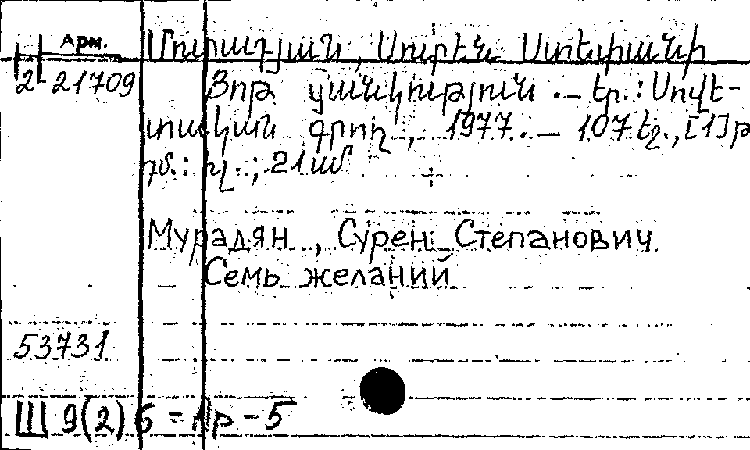 Арм.
Մուրադյան, Սուրեն Ստեփանի
2-21709
Յոթ ցանկություն .– Եր.: Սովե-
տական գրող, 1977. – 107 էջ, [1] թ
դմ.: նկ.; 21 սմ
Мурадян, Сурен Степанович.
Семь желаний
53731
Ш 9(2) 6 = Ар - 5